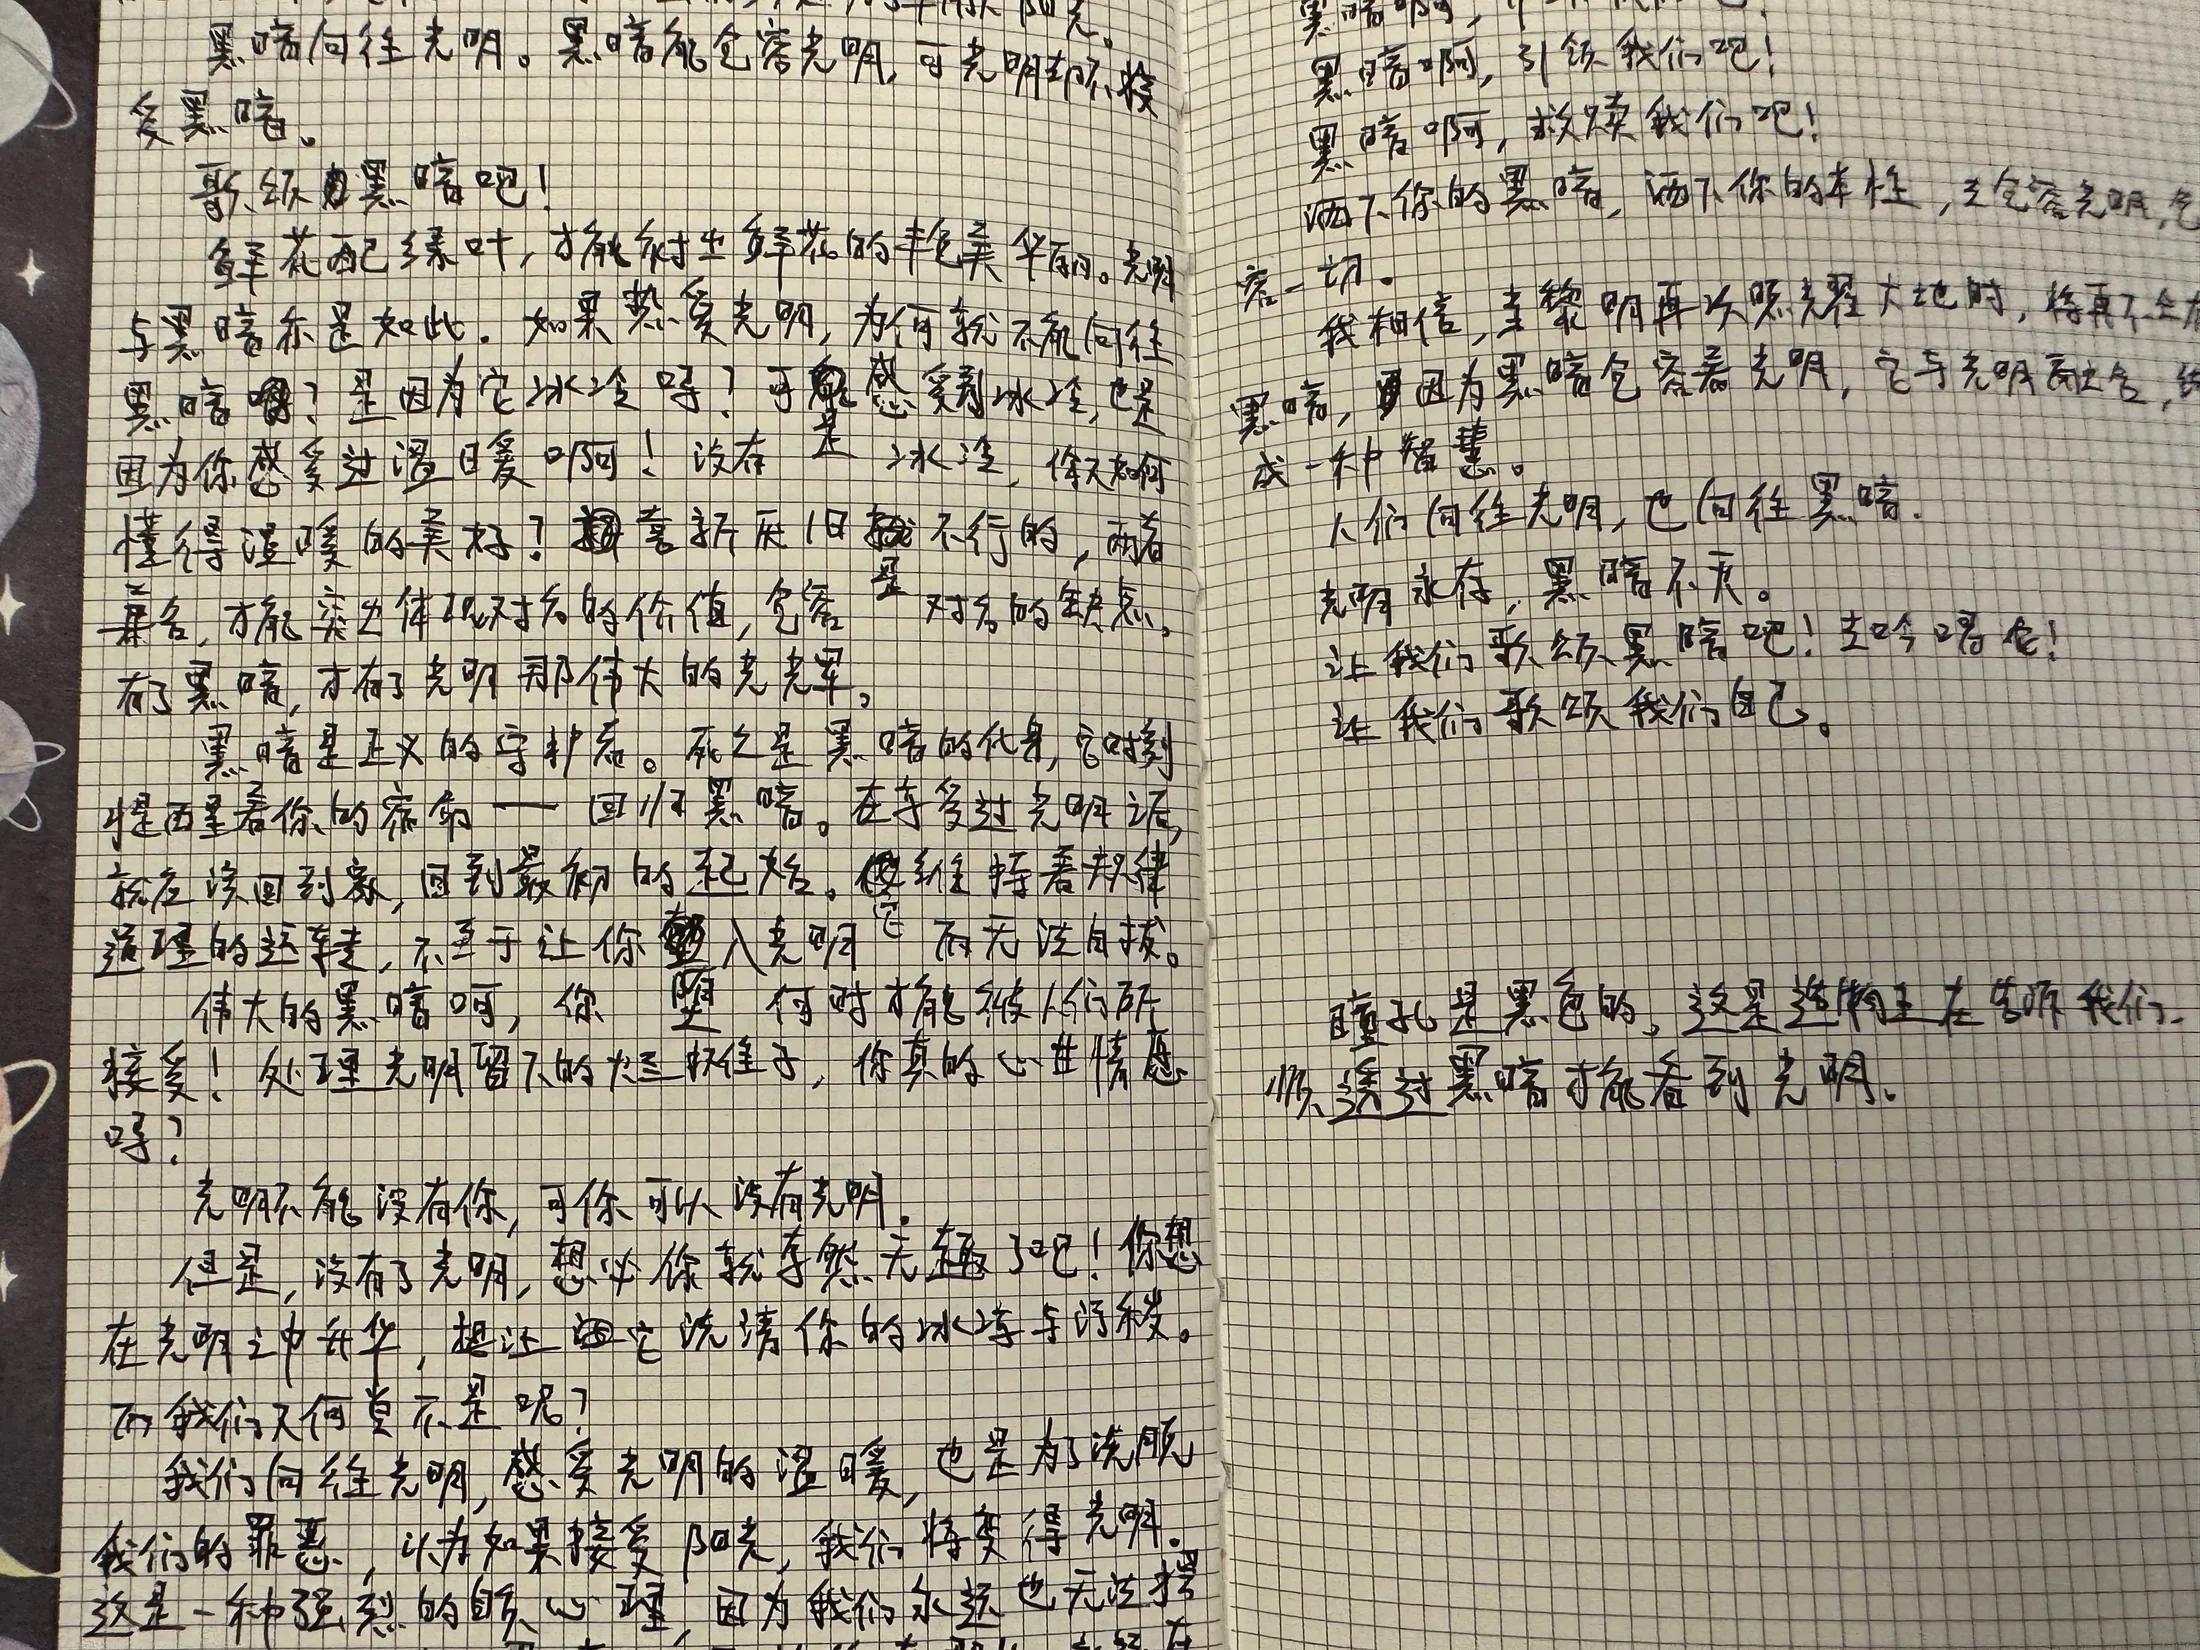 黑暗向往光明。黑暗能包容光明,可光明却不接
受黑暗。
歌颂黑暗吧!
鲜花配绿叶,才能衬出鲜花的丰色美华丽。光明
与黑暗亦是如此。如果热爱光明,为何就不能向往
黑暗?是因为它冰冷吗?可能感受到冰冷,也是
因为你感受过温暖啊!没有冰冷,你又如何
懂得温暖的美好?喜新厌旧是不行的,两者
兼容,才能突出体现对方的价值,包容对方的缺点。
有了黑暗,才有了光明那伟大的光辉。
黑暗是正义的守护者。死亡是黑暗的化身,它时刻
提醒着你的宿命——回归黑暗。在享受过光明之后,
就应该回到家,回到最初的起始。它维持着规律
道理的运转,不至于让你堕入光明而无法自拔。
伟大的黑暗啊,你何时才能被人们所
接受!处理光明留下的烂摊子,你真的心甘情愿
吗?
光明不能没有你,可你可以没有光明。
但是,没有了光明,想必你就孑然无趣了吧!你想
在光明之中升华,想让它洗清你的冰冷与污秽。
而我们又何尝不是呢?
我们向往光明,感受光明的温暖,也是为了洗脱
我们的罪恶,以为如果接受阳光,我们将变得光明。
这是一种强烈的自欺心理,因为我们永远也无法摆
黑暗啊,引领我们吧!
黑暗啊,救赎我们吧!
洒下你的黑暗,洒下你的本性,去包容光明,包
容一切。
我相信,当黎明再次照耀大地时,将再不会有
黑暗,因为黑暗包容着光明,它与光明融合,结
成一种智慧。
人们向往光明,也向往黑暗。
光明永存,黑暗不灭。
让我们歌颂黑暗吧!去吟唱它!
让我们歌颂我们自己。
瞳孔是黑色的。这是造物主在告诉我们
须透过黑暗才能看到光明。